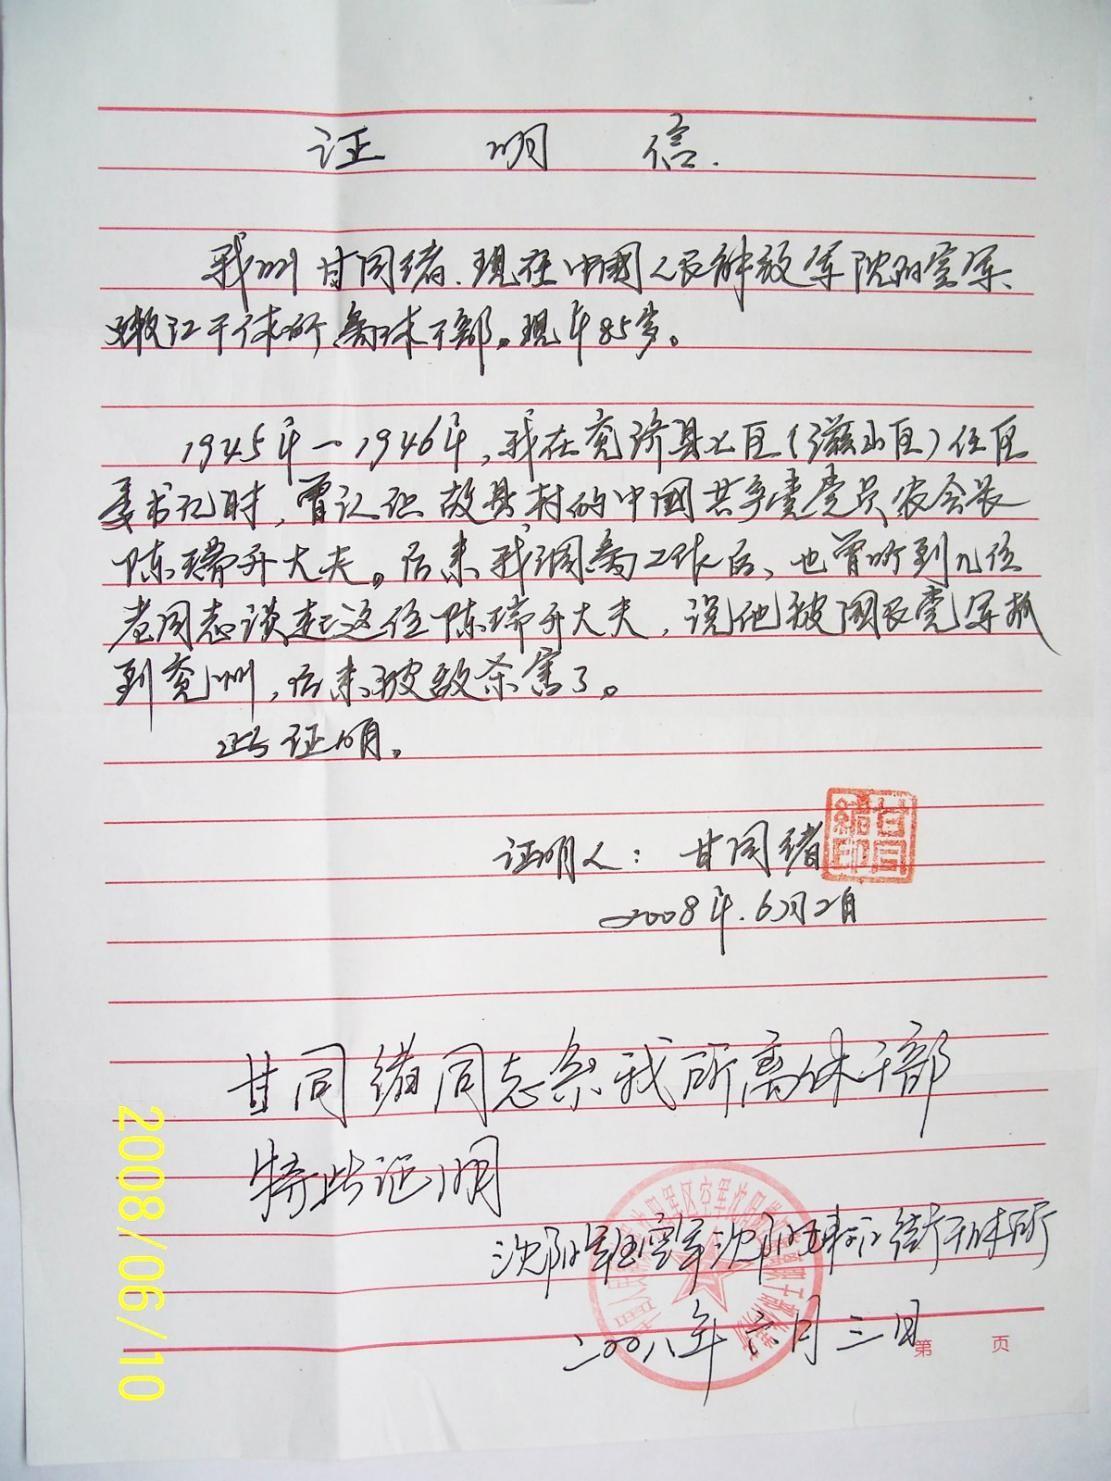 证 明 信.
我叫甘同绪.现在中国人民解放军沈阳空军、
嫩江干休所离休干部。现年85岁。
1945年-1946年,我在兖济县七区(滋山区)任区
委书记时,曾认识故县村的中国共产党党员农会长
陈瑞升大夫。后来我调离工作后、也曾听到几位
老同志谈起这位陈瑞升大夫,说他被国民党军抓
到兖州,后来被敌杀害了。
此证明。
证明人:甘同绪
甘同绪印
2008年.6月2日
甘同绪同志系我所离休干部
特此证明
沈阳军区空军沈阳嫩江街干休所
二00八年六月三日
第 页
2008/06/10